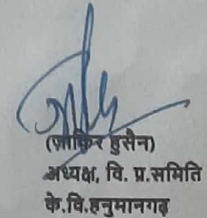 (ज़ाकिर हुसैन)
अध्यक्ष, वि. प्र.समिति
के.वि.हनुमानगढ़